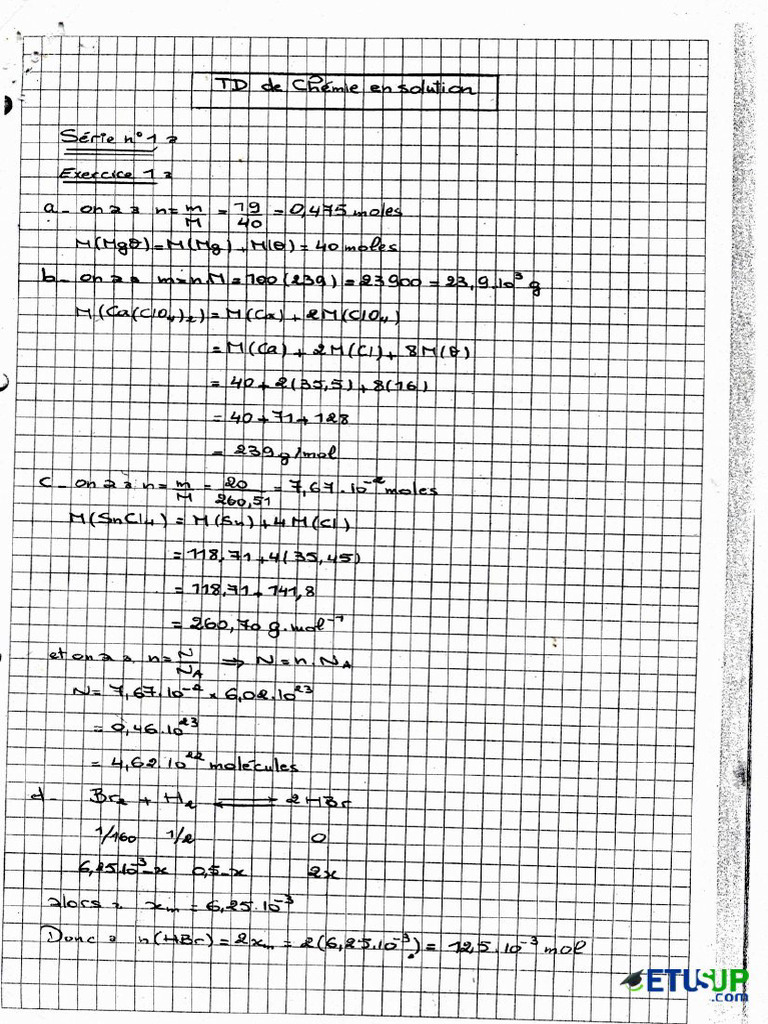 TD de Chimie en solution
Série n°1 :
Exercice 1 :
a - on a : n = m/M = 19/40 = 0,475 moles
M(MgO) = M(Mg) + M(O) = 40 moles
b - on a : m = n.M = 100(239) = 23900 = 23,9.10³ g
M(Ca(ClO₄)₂) = M(Ca) + 2M(ClO₄)
= M(Ca) + 2M(Cl) + 8M(O)
= 40 + 2(35,5) + 8(16)
= 40 + 71 + 128
= 239 g/mol
c - on a : n = m/M = 20/260,51 = 7,67.10⁻² moles
M(SnCl₄) = M(Sn) + 4M(Cl)
= 118,71 + 4(35,45)
= 118,71 + 141,8
= 260,70 g.mol⁻¹
et on a : n = N/N_A ⇒ N = n.N_A
N = 7,67.10⁻² × 6,02.10²³
= 0,46.10²³
= 4,62.10²² molécules
d - Br₂ + H₂ ⇌ 2HBr
1/160 1/2 0
6,25.10⁻³-x 0,5-x 2x
alors : xm = 6,25.10⁻³
Donc : n(HBr) = 2xm = 2(6,25.10⁻³) = 12,5.10⁻³ mol
ETUSUP
.com